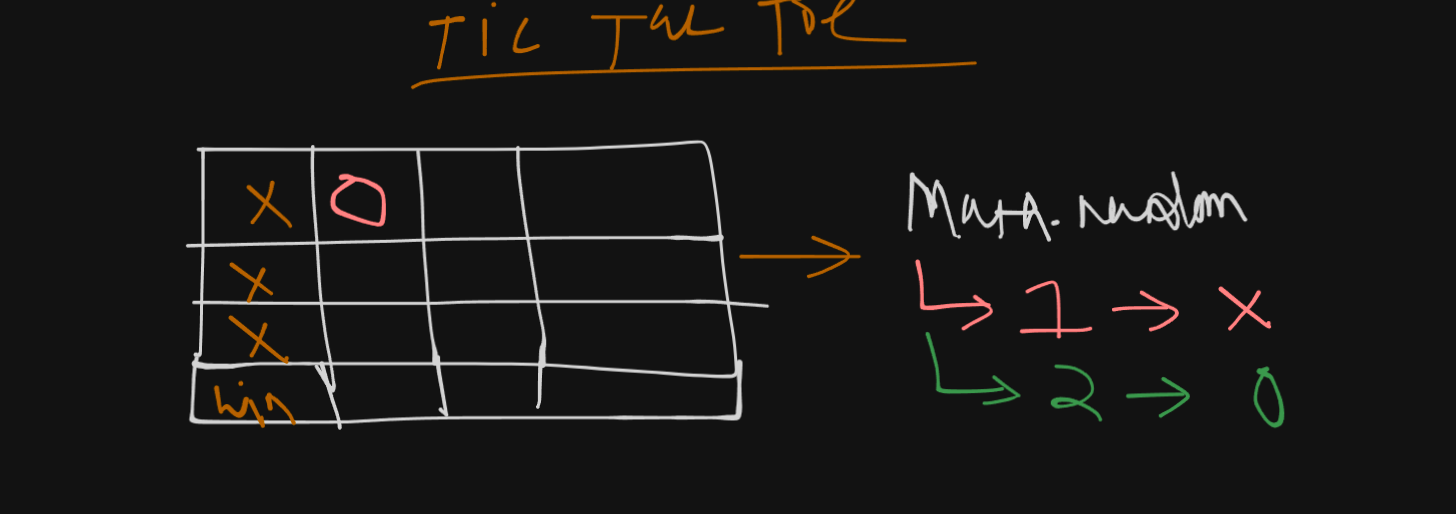 Tic Tac Toe
X O
X
X
Win
Math.random
1 → X
2 → 0